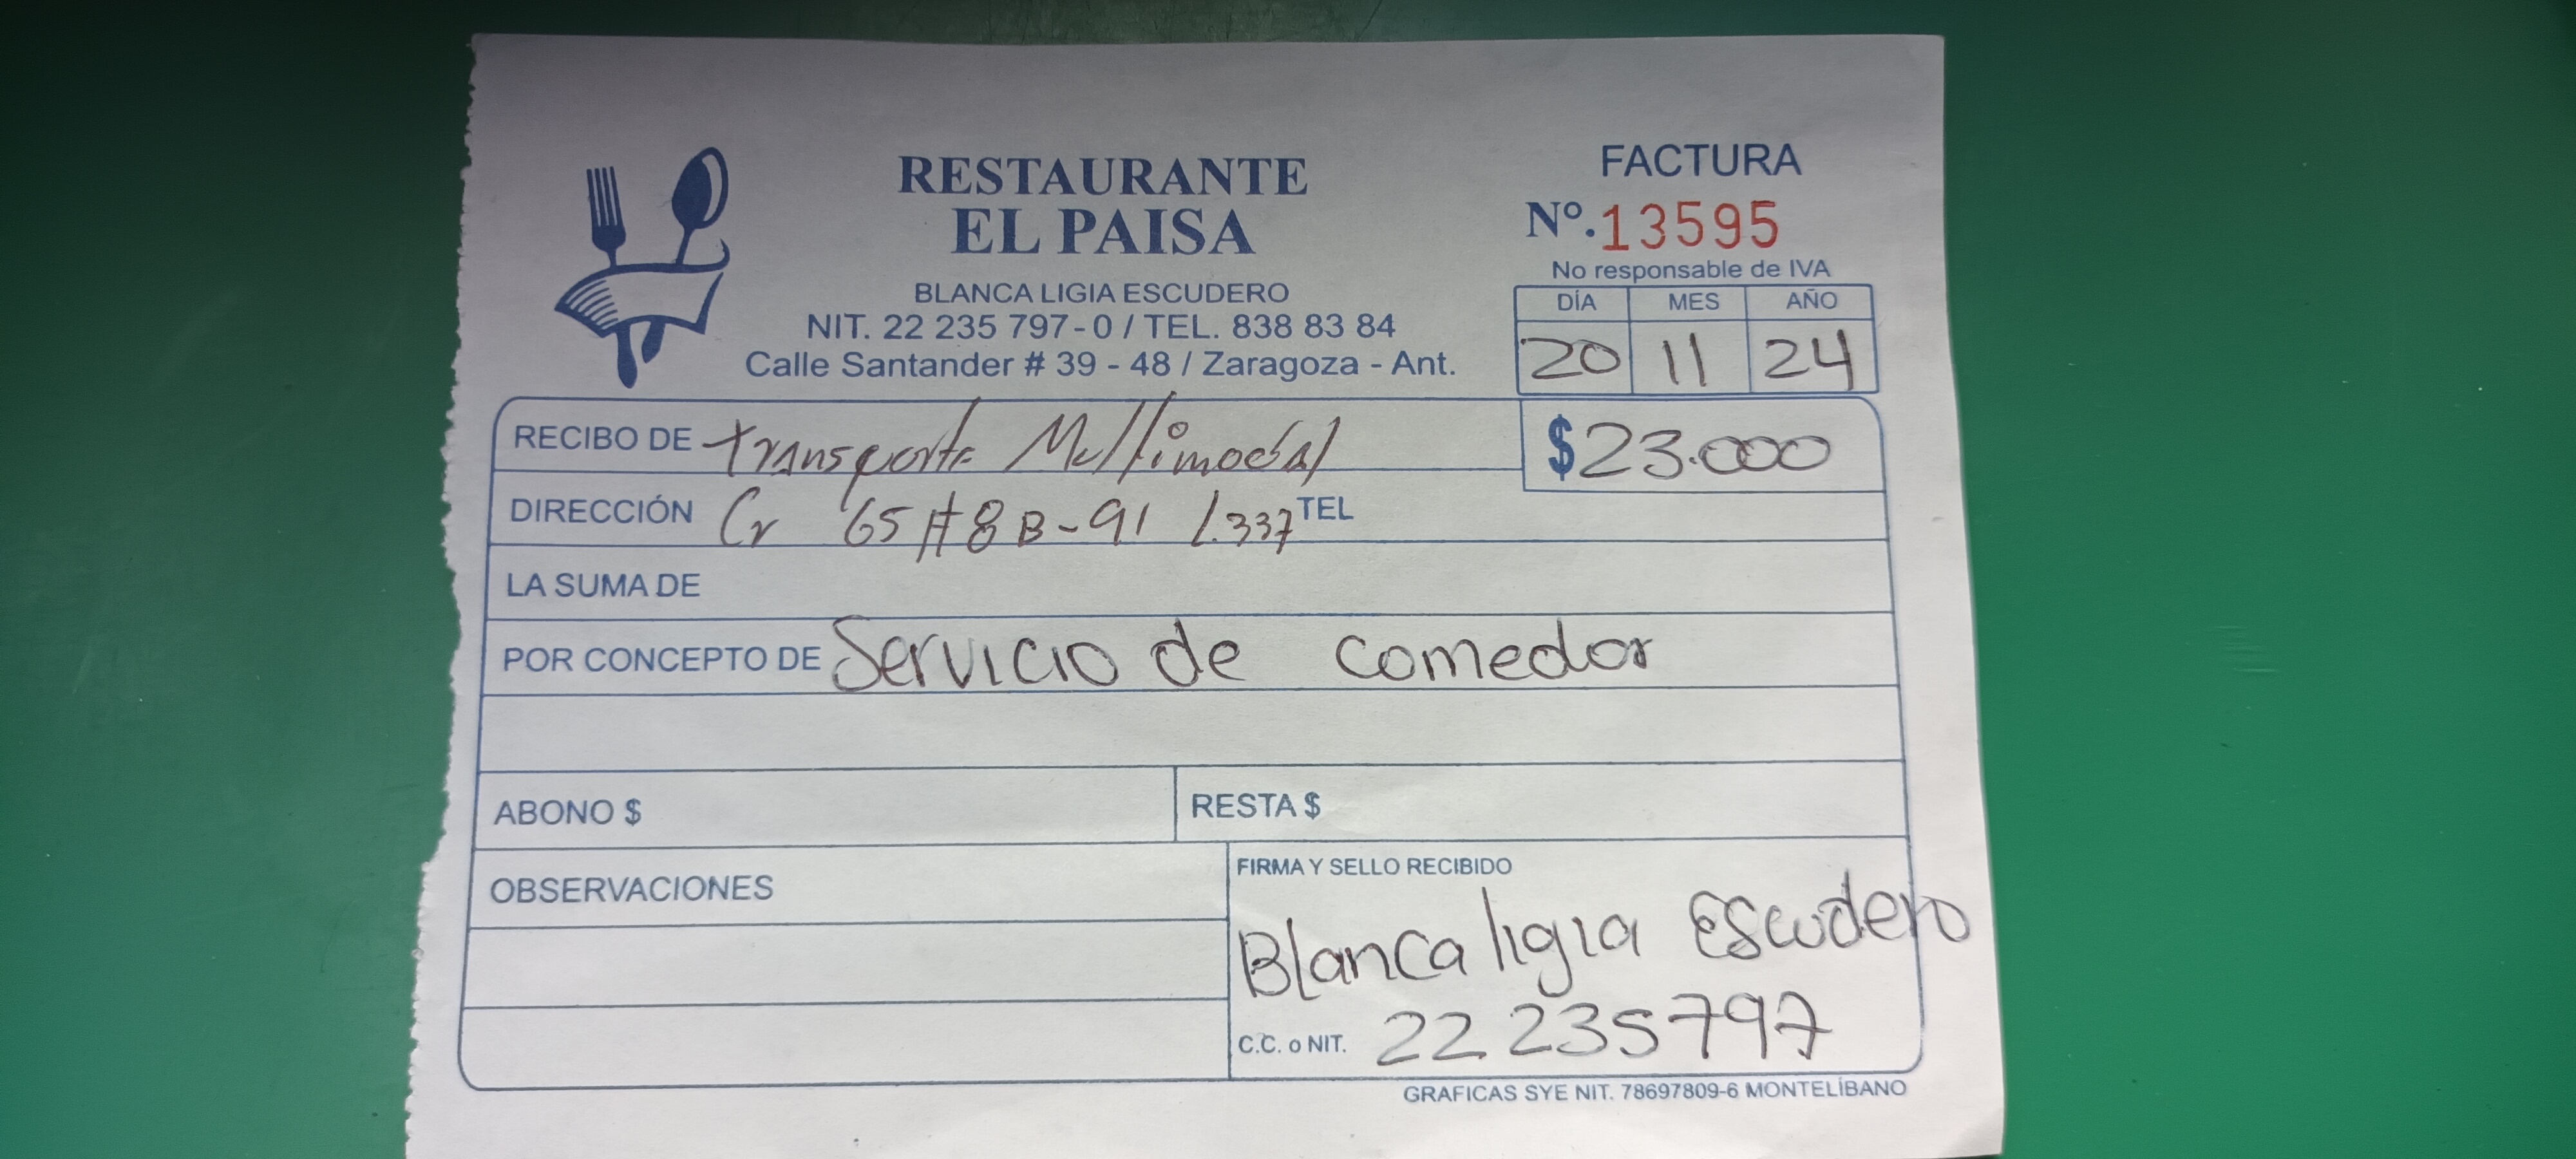 RESTAURANTE
EL PAISA
BLANCA LIGIA ESCUDERO
NIT. 22 235 797-0 / TEL. 838 83 84
Calle Santander # 39 - 48 / Zaragoza - Ant.
FACTURA
Nº. 13595
No responsable de IVA
DÍA MES AÑO
20 11 24
RECIBO DE Transporte Multimodal $ 23.000
DIRECCIÓN Cr 65 # 8B-91 L.337 TEL
LA SUMA DE
POR CONCEPTO DE Servicio de comedor
ABONO $ RESTA $
OBSERVACIONES
FIRMA Y SELLO RECIBIDO
Blanca ligia Escudero
C.C. o NIT. 22 235797
GRAFICAS SYE NIT. 78697809-6 MONTELÍBANO